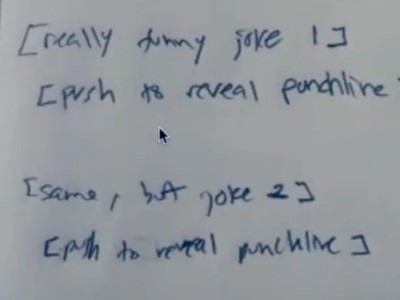 [really funny joke 1]
[push to reveal punchline
[same, but joke 2]
[push to reveal punchline]